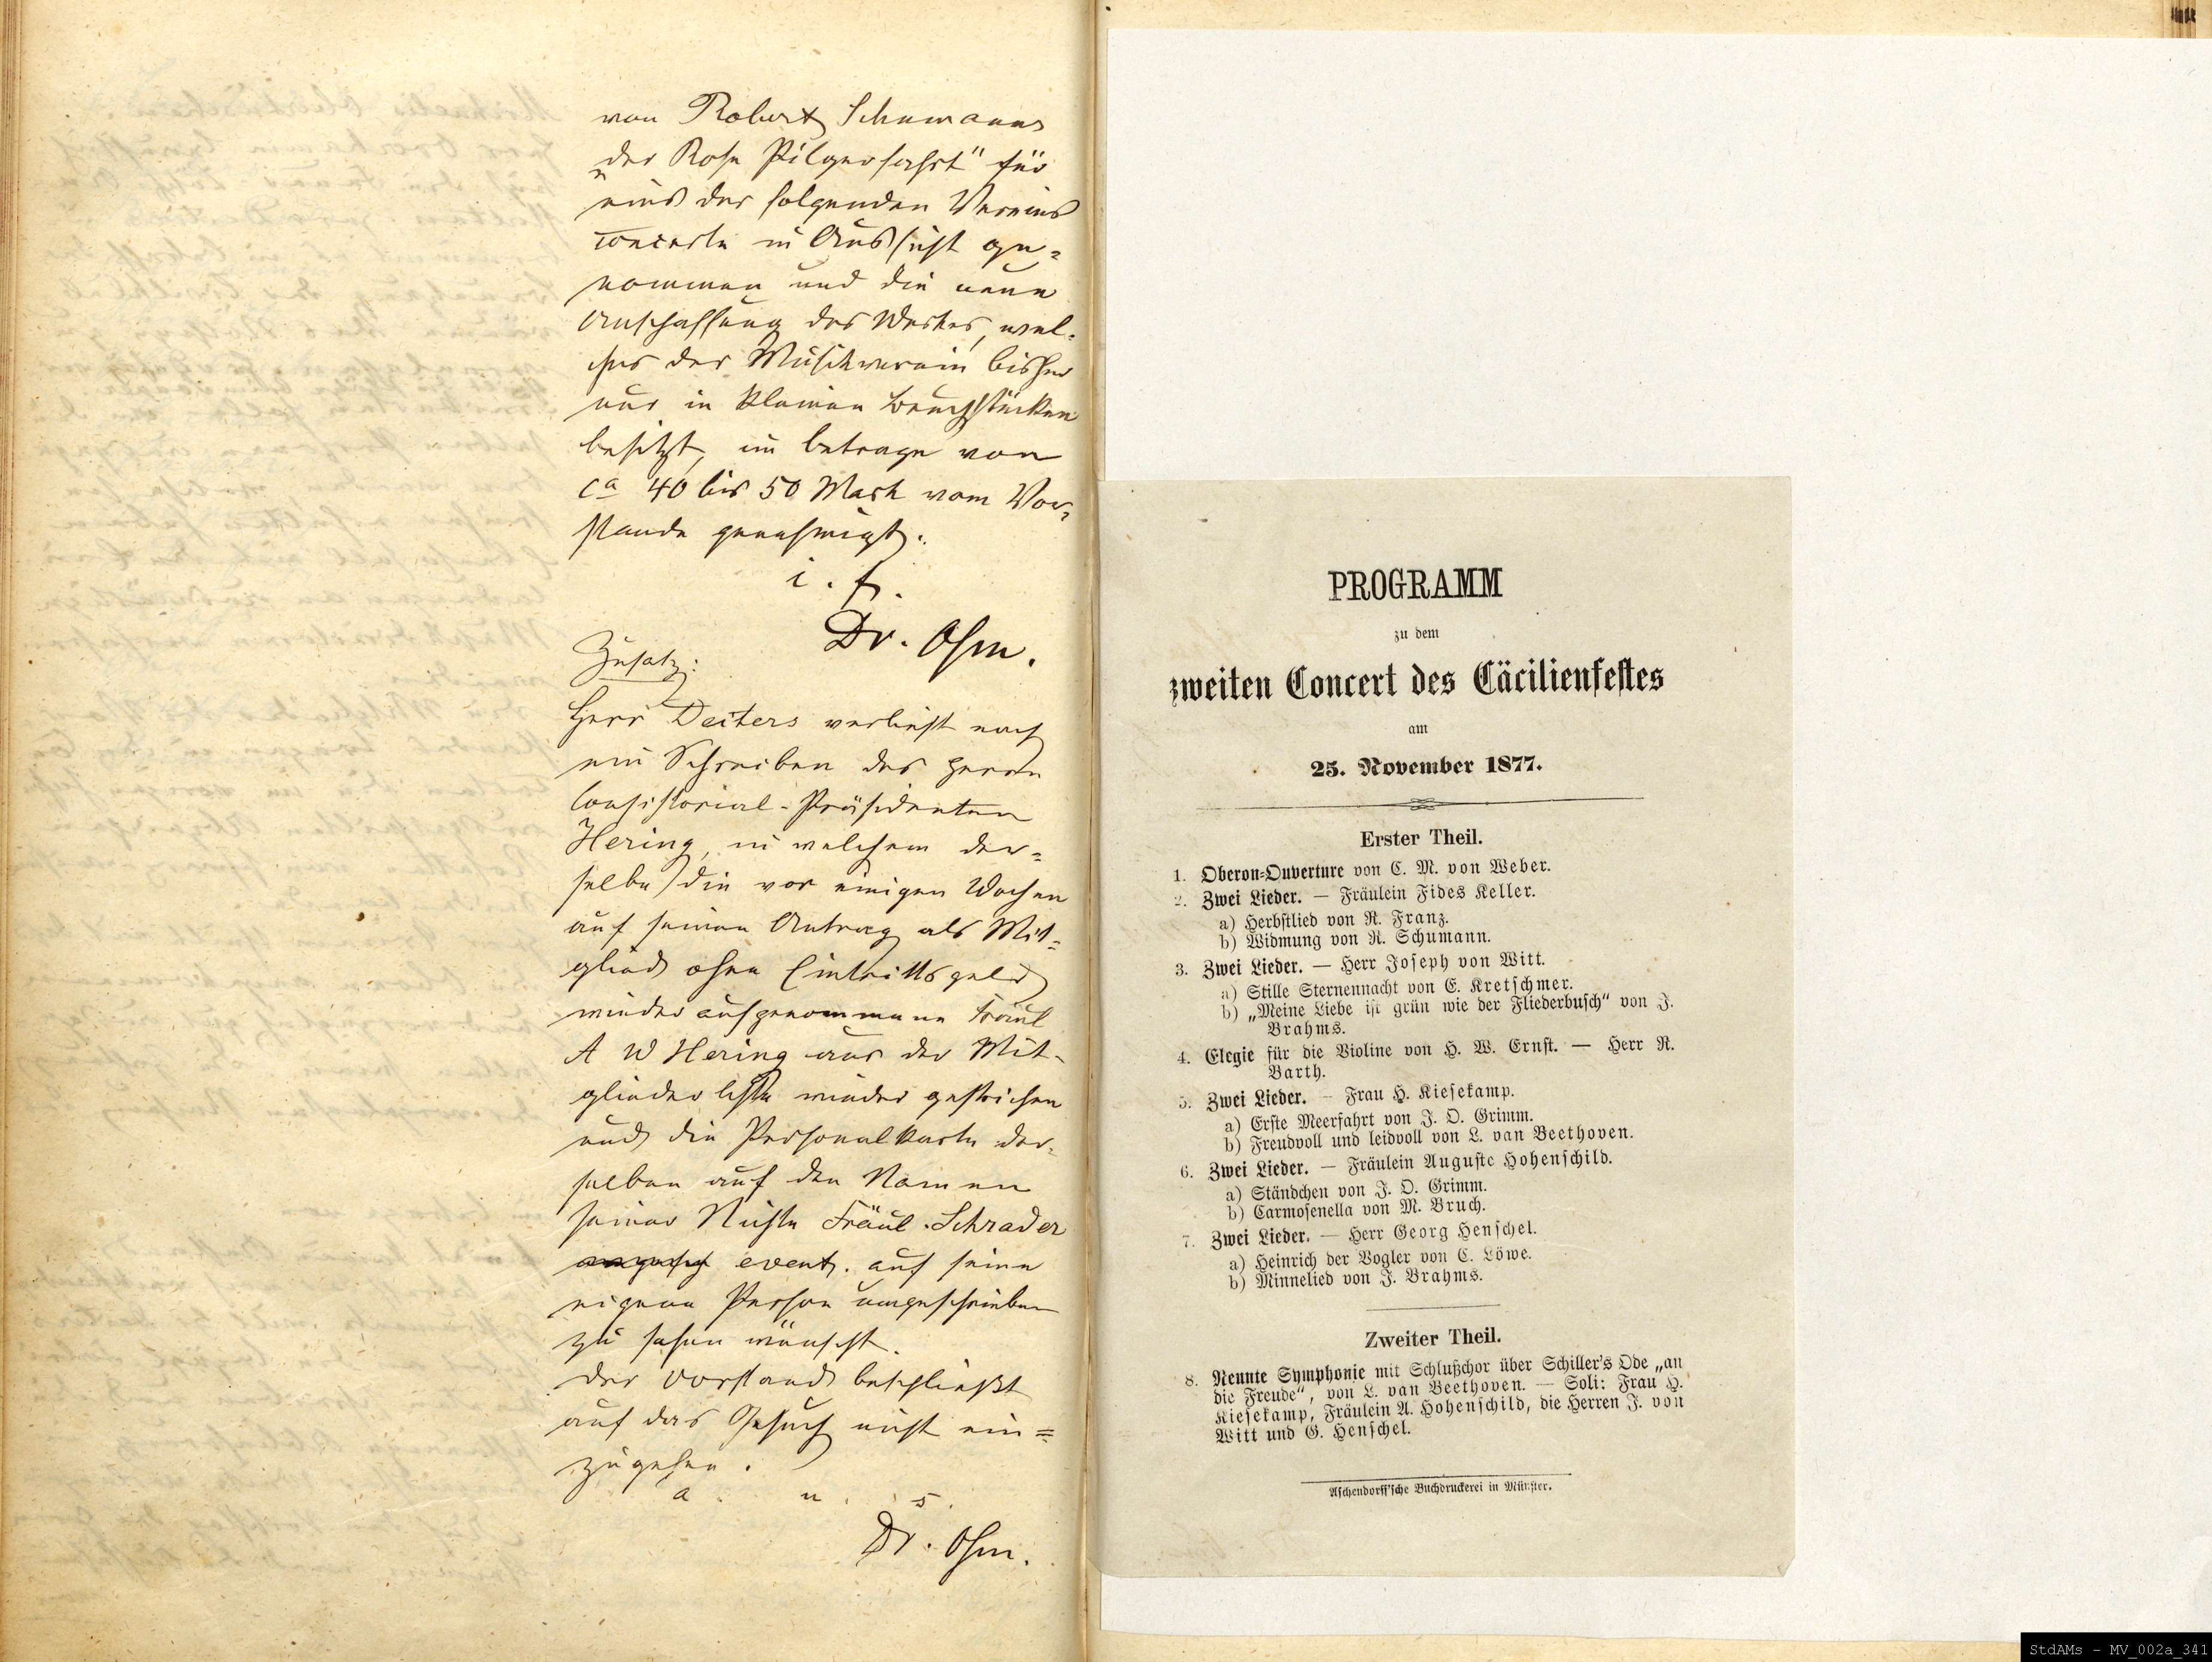 von Robert Schumanns
„der Rose Pilgerfahrt" für
eins der folgenden Vereins
concerte in Aussicht ge-
nommen und die neue
Anschaffung des Werkes, wel-
ches der Musikverein bisher
nur in kleinen Bruchstücken
besitzt, im Betrage von
ca 40 bis 50 Mark vom Vor-
stande genehmigt.
i. f.
Dr. Ohm.
Zusatz:
Herr Deiters verliest noch
ein Schreiben des Herrn
Consistorial-Präsidenten
Hering, in welchem der-
selbe die vor einigen Wochen
auf seinen Antrag als Mit-
glied ohne Eintrittsgeld
wieder aufgenommene Fräul
A W Hering aus der Mit-
gliederliste wieder gestrichen
und die Personalkarte der-
selben auf den Namen
seiner Nichte Fräul. Schrader
event. auf seine
eigene Person umgeschrieben
zu sehen wünscht.
Der Vorstand beschließt
auf das Gesuch nicht ein=
zugehen.
a. u. s.
Dr. Ohm.
PROGRAMM
zu dem
zweiten Concert des Cäcilienfestes
am
25. November 1877.
Erster Theil.
1. Oberon-Ouverture von C. M. von Weber.
2. Zwei Lieder. — Fräulein Fides Keller.
a) Herbstlied von R. Franz.
b) Widmung von R. Schumann.
3. Zwei Lieder. — Herr Joseph von Witt.
a) Stille Sternennacht von E. Kretschmer.
b) „Meine Liebe ist grün wie der Fliederbusch" von J.
Brahms.
4. Elegie für die Violine von H. W. Ernst. — Herr R.
Barth.
5. Zwei Lieder. — Frau H. Kiesekamp.
a) Erste Meerfahrt von J. O. Grimm.
b) Freudvoll und leidvoll von L. van Beethoven.
6. Zwei Lieder. — Fräulein Auguste Hohenschild.
a) Ständchen von J. O. Grimm.
b) Carmosenella von M. Bruch.
7. Zwei Lieder. — Herr Georg Henschel.
a) Heinrich der Vogler von C. Löwe.
b) Minnelied von J. Brahms.
Zweiter Theil.
8. Neunte Symphonie mit Schlußchor über Schiller's Ode „an
die Freude", von L. van Beethoven. — Soli: Frau H.
Kiesekamp, Fräulein A. Hohenschild, die Herren J. von
Witt und G. Henschel.
Aschendorff'sche Buchdruckerei in Münster.
StdAMs - MV_002a_341